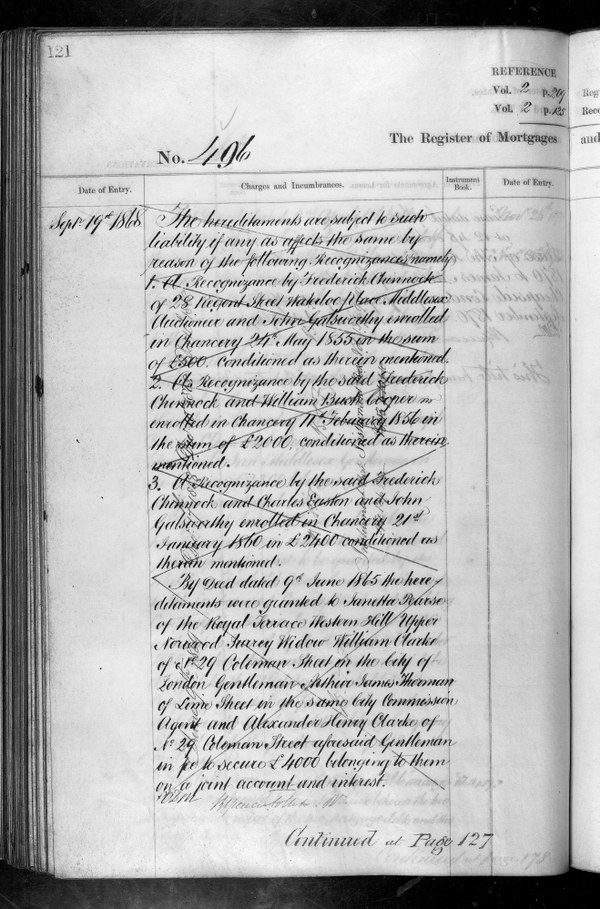 121
REFERENCE
Vol. 2 p. 219
Vol. 2 p. 125
The Register of Mortgages and
No. 496
Date of Entry.
Charges and Incumbrances.
Instrument Book.
Date of Entry.
Sept. 19th 1868
The hereditaments are subject to such
liability if any as affects the same by
reason of the following Recognizances namely
1. A Recognizance by Frederick Chinnock
of 28 Regent Street Waterloo place Middlesex
Auctioneer and John Galsworthy enrolled
in Chancery 24th May 1855 in the sum
of £500. conditioned as therein mentioned.
2. A Recognizance by the said Frederick
Chinnock and William Bush Cooper
enrolled in Chancery 11th February 1856 in
the sum of £2000 conditioned as therein
mentioned.
3. A Recognizance by the said Frederick
Chinnock and Charles Easton and John
Galsworthy enrolled in Chancery 21st
January 1860 in £2400 conditioned as
therein mentioned.
By Deed dated 9th June 1865 the here-
ditaments were granted to Janetta Pearse
of the Royal Terrace Western Hill Upper
Norwood Surrey Widow William Clarke
of No. 29 Coleman Street in the City of
London Gentleman Arthur James Thorman
of Lime Street in the same City Commission
Agent and Alexander Henry Clarke of
No. 29 Coleman Street aforesaid Gentleman
in fee to secure £4000 belonging to them
on a joint account and interest.
Continued at Page 127